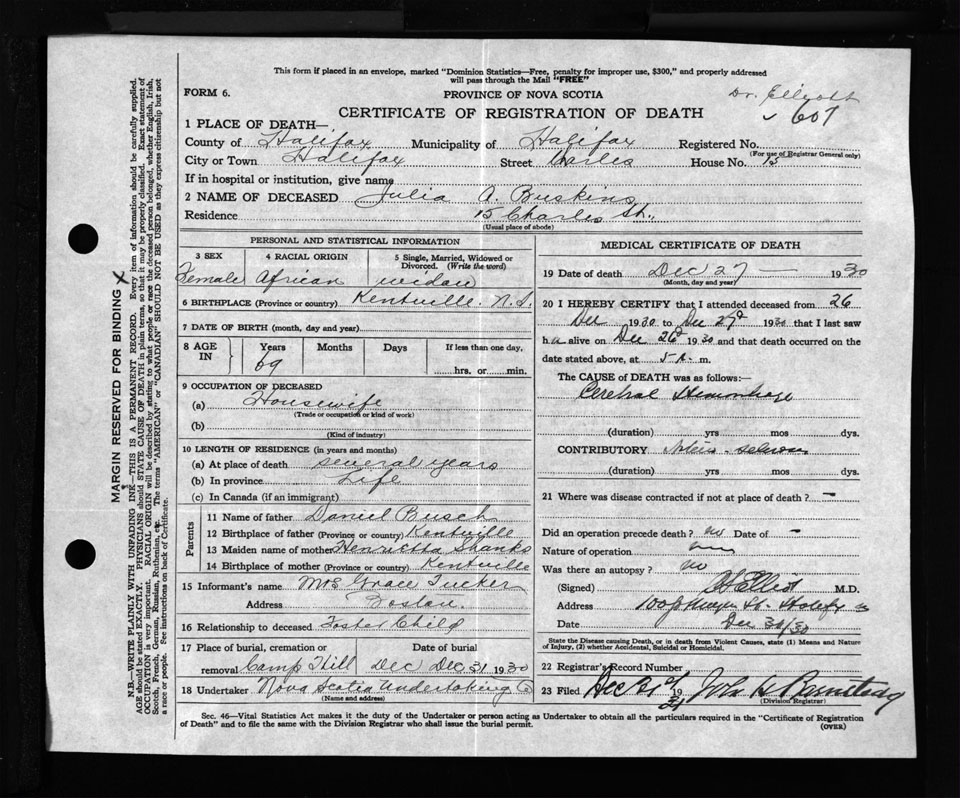 This form if placed in an envelope, marked "Dominion Statistics—Free, penalty for improper use, $300," and properly addressed
will pass through the Mail "FREE"
FORM 6.
PROVINCE OF NOVA SCOTIA
Dr. Elliott
CERTIFICATE OF REGISTRATION OF DEATH
607
1 PLACE OF DEATH—
County of Halifax Municipality of Halifax Registered No.
(For use of Registrar General only)
City or Town Halifax Street Charles House No. 15
If in hospital or institution, give name
2 NAME OF DECEASED Julia A. Buskins
Residence 15 Charles St.,
(Usual place of abode)
PERSONAL AND STATISTICAL INFORMATION
3 SEX 4 RACIAL ORIGIN 5 Single, Married, Widowed or
Divorced. (Write the word)
Female African widow
6 BIRTHPLACE (Province or country) Kentville. N.S.
7 DATE OF BIRTH (month, day and year)
8 AGE IN Years Months Days If less than one day,
69 hrs. or min.
9 OCCUPATION OF DECEASED
(a) Housewife
(Trade or occupation or kind of work)
(b)
(Kind of industry)
10 LENGTH OF RESIDENCE (in years and months)
(a) At place of death several years
(b) In province Life
(c) In Canada (if an immigrant)
Parents
11 Name of father Daniel Busch
12 Birthplace of father (Province or country) Kentville
13 Maiden name of mother Henrietta Shanks
14 Birthplace of mother (Province or country) Kentville
15 Informant's name Mrs Grace Tucker
Address Boston.
16 Relationship to deceased Foster Child
17 Place of burial, cremation or Date of burial
removal Camp Hill Dec Dec 31 1930
18 Undertaker Nova Scotia Undertaking Co
(Name and address)
MEDICAL CERTIFICATE OF DEATH
19 Date of death Dec 27 — 1930
(Month, day and year)
20 I HEREBY CERTIFY that I attended deceased from 26
Dec 1930 to Dec 27 1930 that I last saw
h alive on Dec 26 1930 and that death occurred on the
date stated above, at 5 a. m.
The CAUSE of DEATH was as follows:—
Cerebral Hemorrhage
(duration) yrs mos. dys.
CONTRIBUTORY
(duration) yrs. mos. dys.
21 Where was disease contracted if not at place of death? —
Did an operation precede death? no Date of —
Nature of operation
Was there an autopsy? no
(Signed) Elliott M.D.
Address
Date Dec 30/30
State the Disease causing Death, or in death from Violent Causes, state (1) Means and Nature
of Injury, (2) whether Accidental, Suicidal or Homicidal.
22 Registrar's Record Number
23 Filed, Dec 31 19
(Division Registrar)
Sec. 46—Vital Statistics Act makes it the duty of the Undertaker or person acting as Undertaker to obtain all the particulars required in the "Certificate of Registration
of Death" and to file the same with the Division Registrar who shall issue the burial permit.
(OVER)
MARGIN RESERVED FOR BINDING X
N.B.—WRITE PLAINLY WITH UNFADING INK—THIS IS A PERMANENT RECORD. Every item of information should be carefully supplied.
AGE should be stated EXACTLY. PHYSICIANS should STATE CAUSE OF DEATH in plain terms, so that it may be properly classified. Exact statement of
OCCUPATION is very important. RACIAL ORIGIN will be described by stating to what people or race the deceased person belonged, whether English, Irish,
Scotch, French, German, Russian, Ruthenian, etc. The terms "AMERICAN" or "CANADIAN" SHOULD NOT BE USED as they express citizenship but not
a race or people. See instructions on back of Certificate.